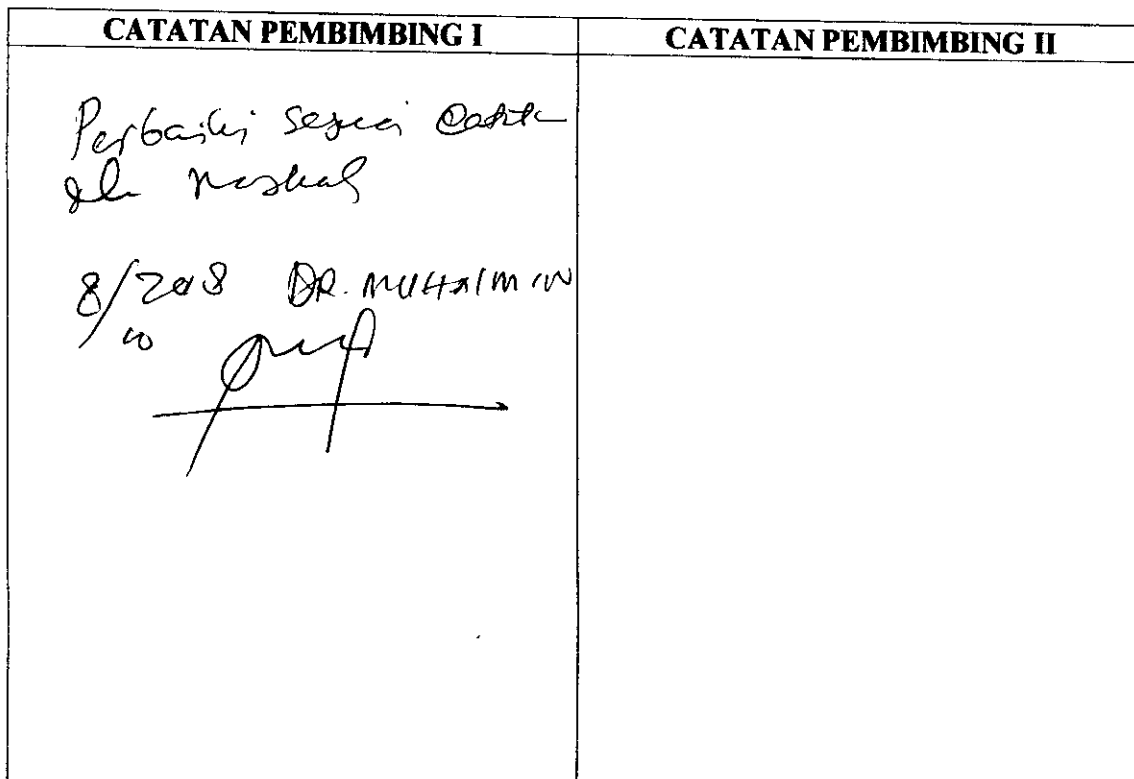 CATATAN PEMBIMBING I
CATATAN PEMBIMBING II
Perbaiki sesuai
naskah
8/2018 DR. MUHAIMIN
10